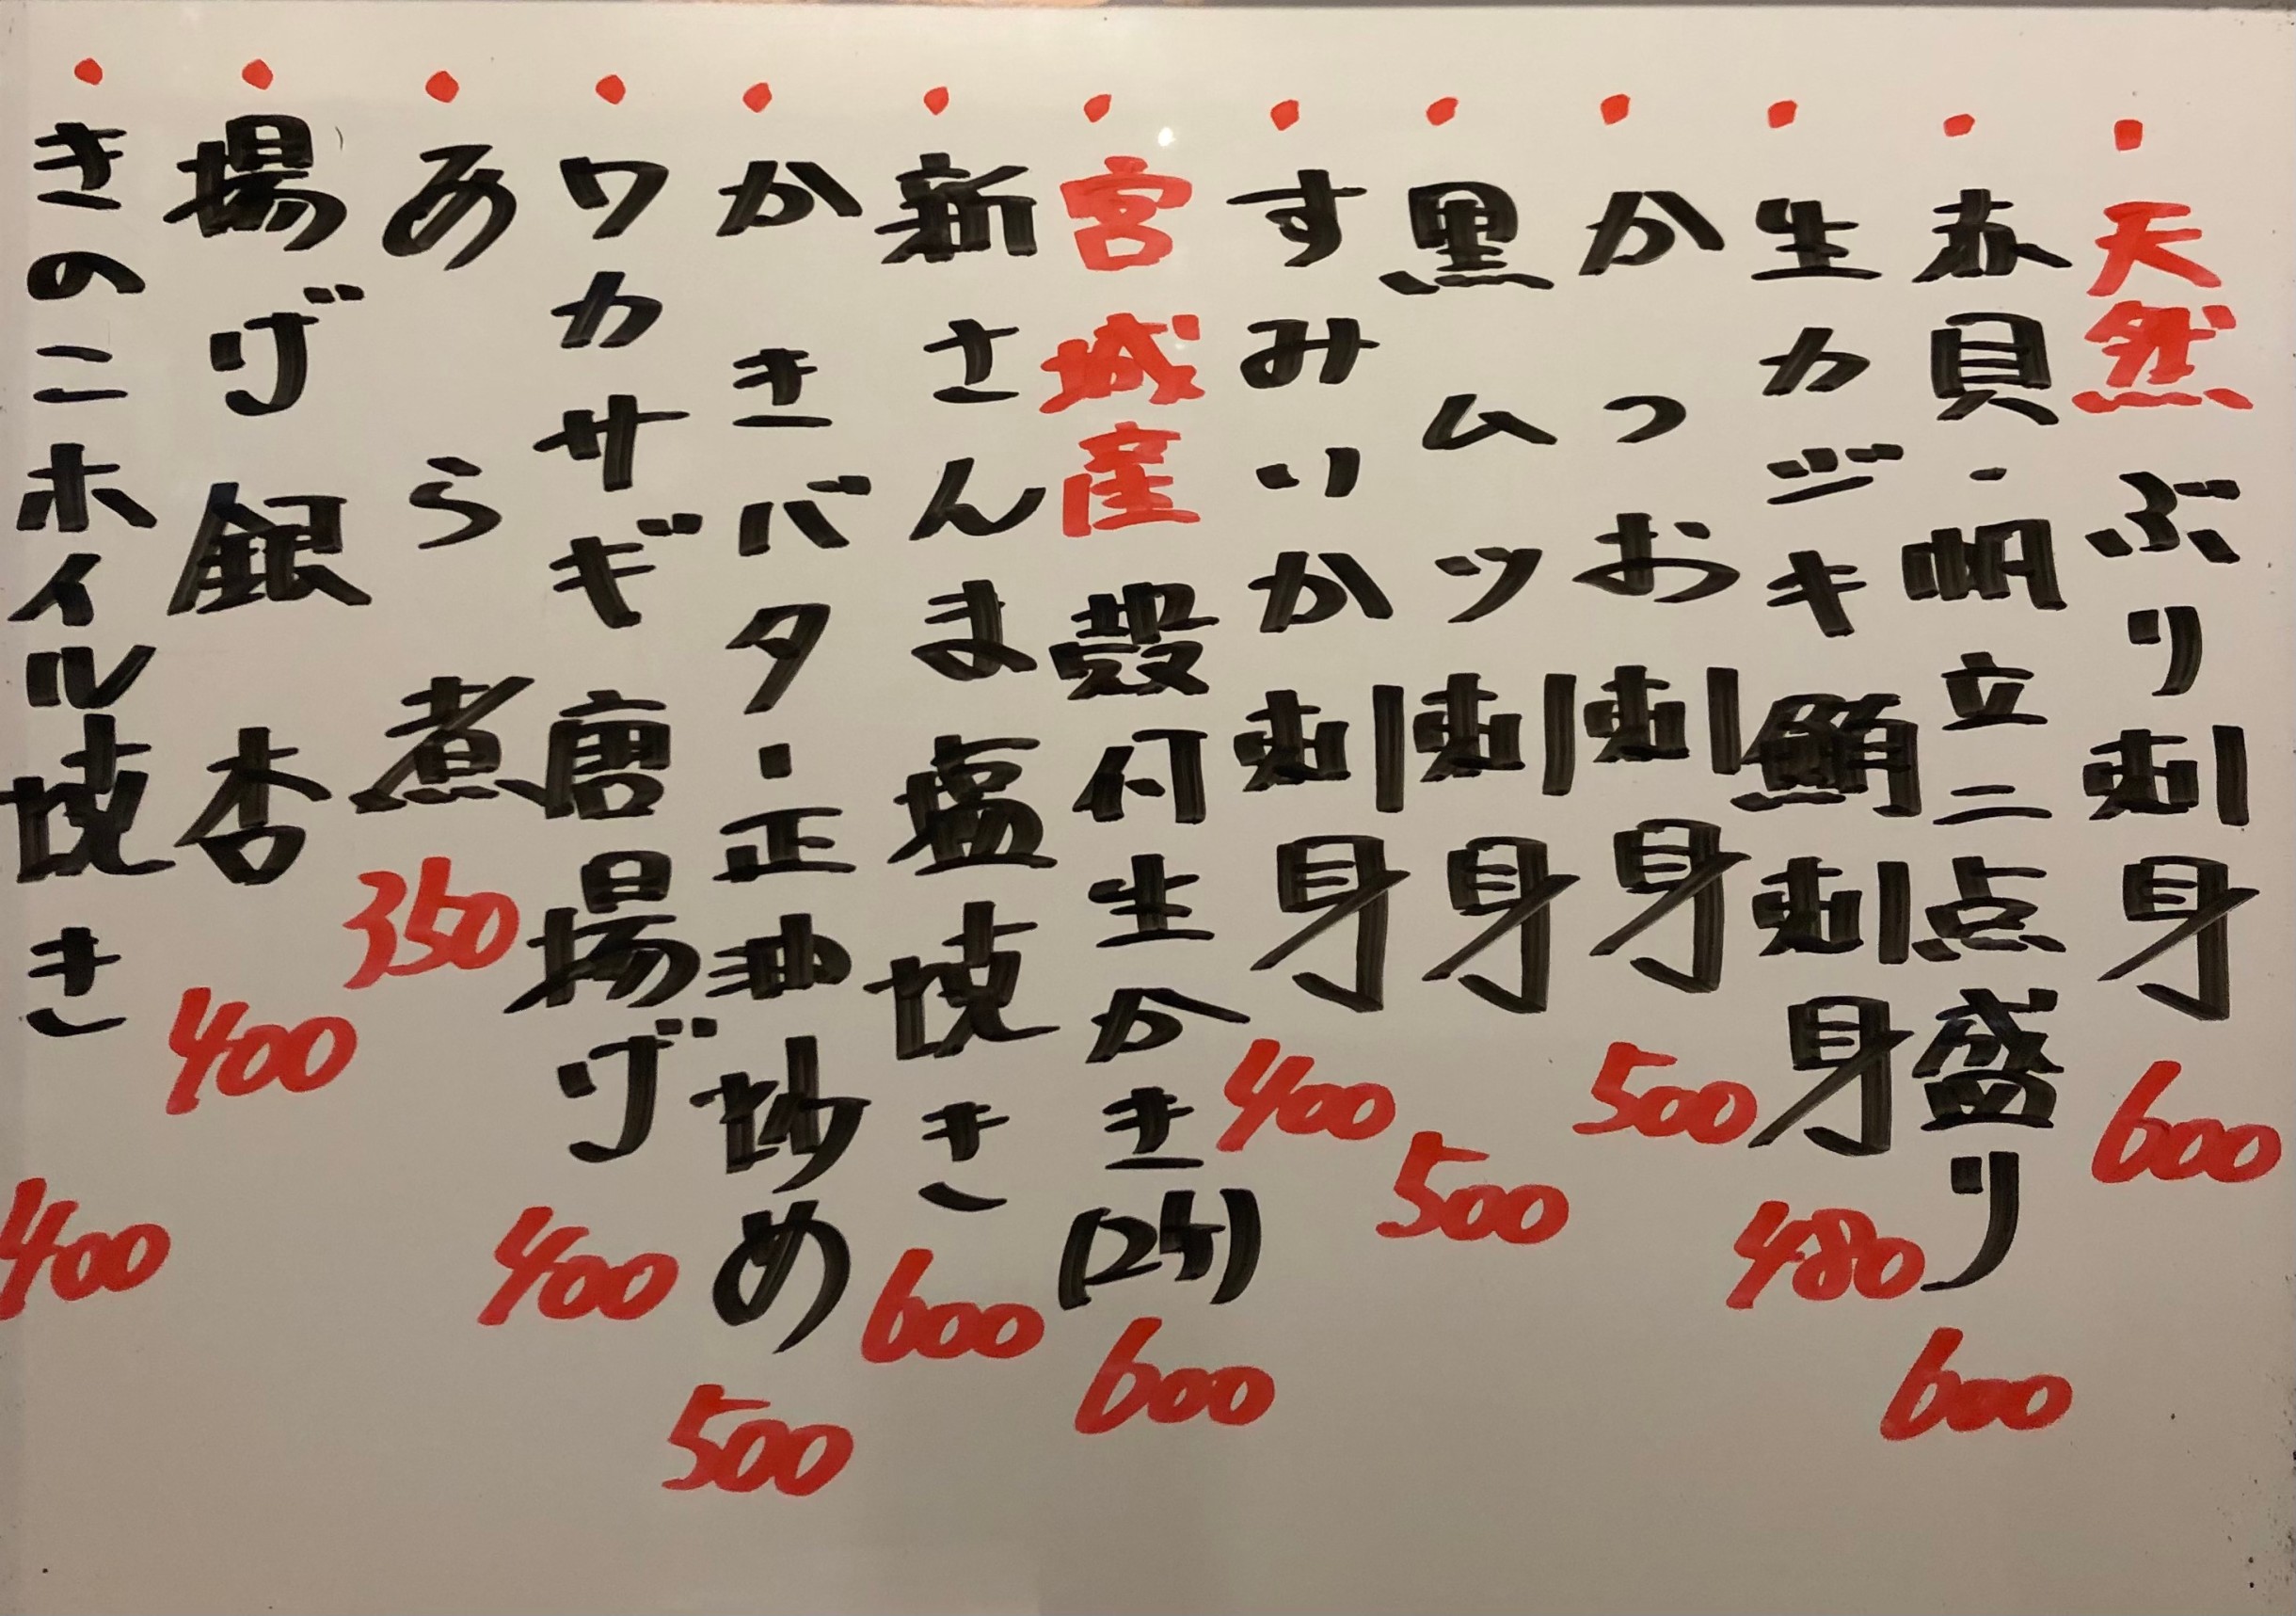 ・天然ぶり刺身 600
・赤貝・帆立二点盛り 600
・生カジキ鮪刺身 480
・かつお刺身 500
・黒ムツ刺身 500
・すみいか刺身 400
・宮城産殻付生かき(2ケ) 600
・新さんま塩焼き 600
・かきバタ・正油炒め 500
・ワカサギ唐揚げ 400
・あら煮 350
・揚げ銀杏 400
・きのこホイル焼き 400